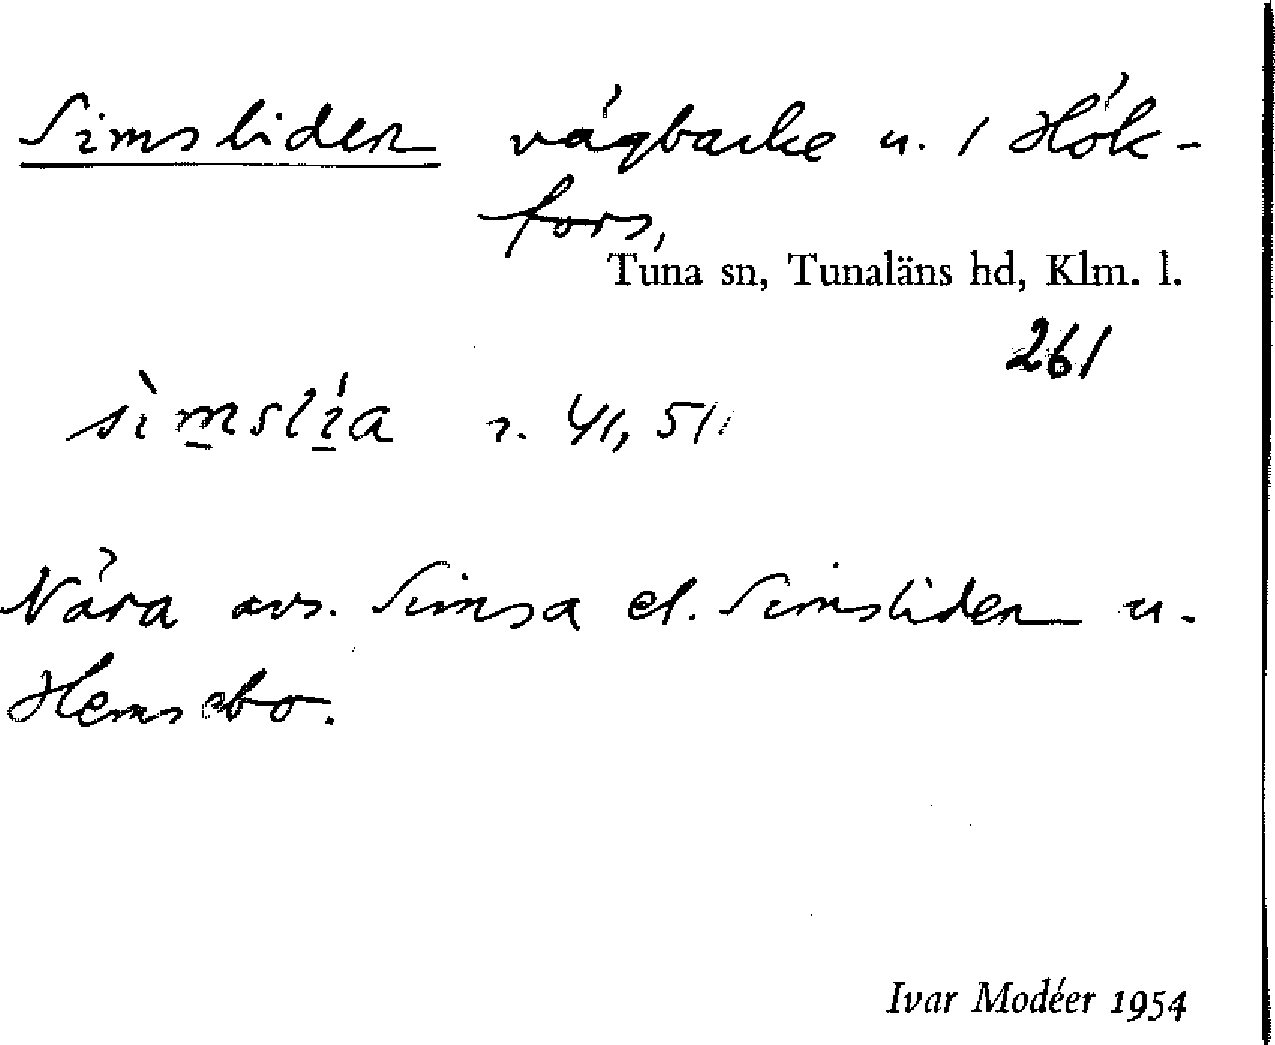 Simsliden vägbacke u. 1 Hök-
fors,
Tuna sn, Tunaläns hd, Klm. l.
261
sìmslía r. 41, 51
Nära avs. Simsa el. Simsliden u.
Hemsebo.
Ivar Modéer 1954